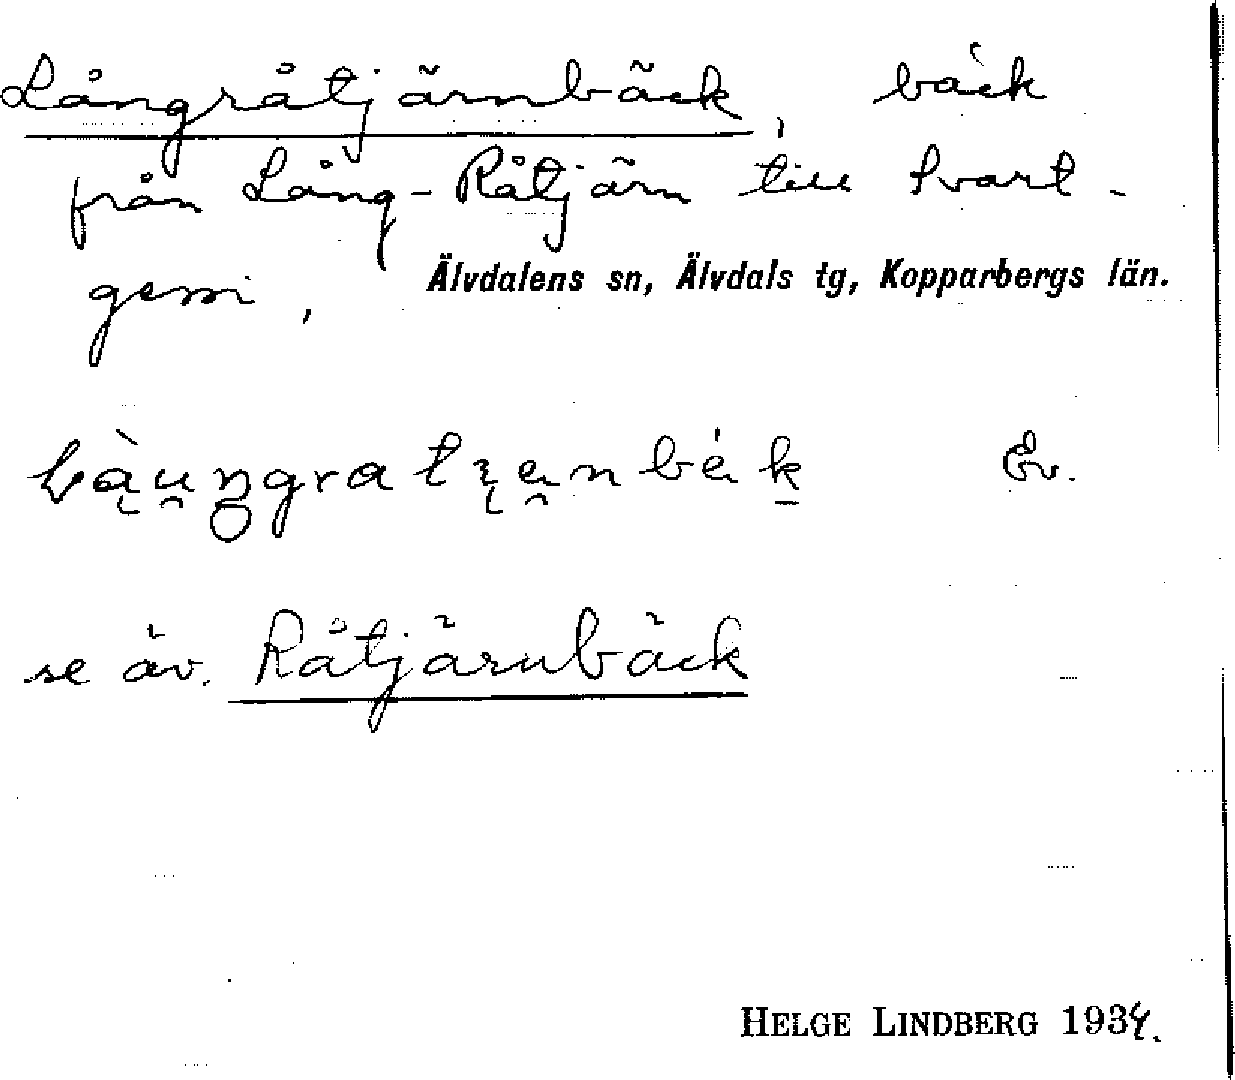 Långråtjärnbäck, bäck
från Lång-Råtjärn till Svart-
gessi,
Älvdalens sn, Älvdals tg, Kopparbergs län.
Ev.
se äv. Råtjärnbäck
HELGE LINDBERG 1934.